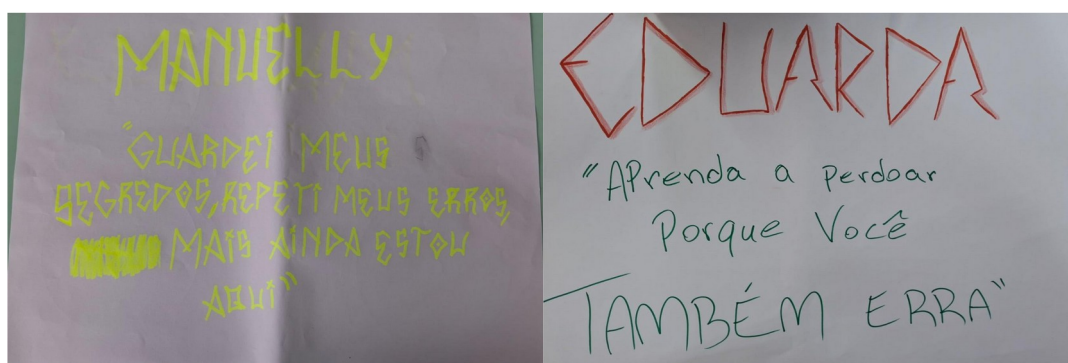 MANUELLY
"GUARDEI MEUS
SEGREDOS, REPETI MEUS ERROS,
MAIS AINDA ESTOU
AQUI"
EDUARDA
"APrenda a perdoar
Porque Você
TAMBÉM ERRA"